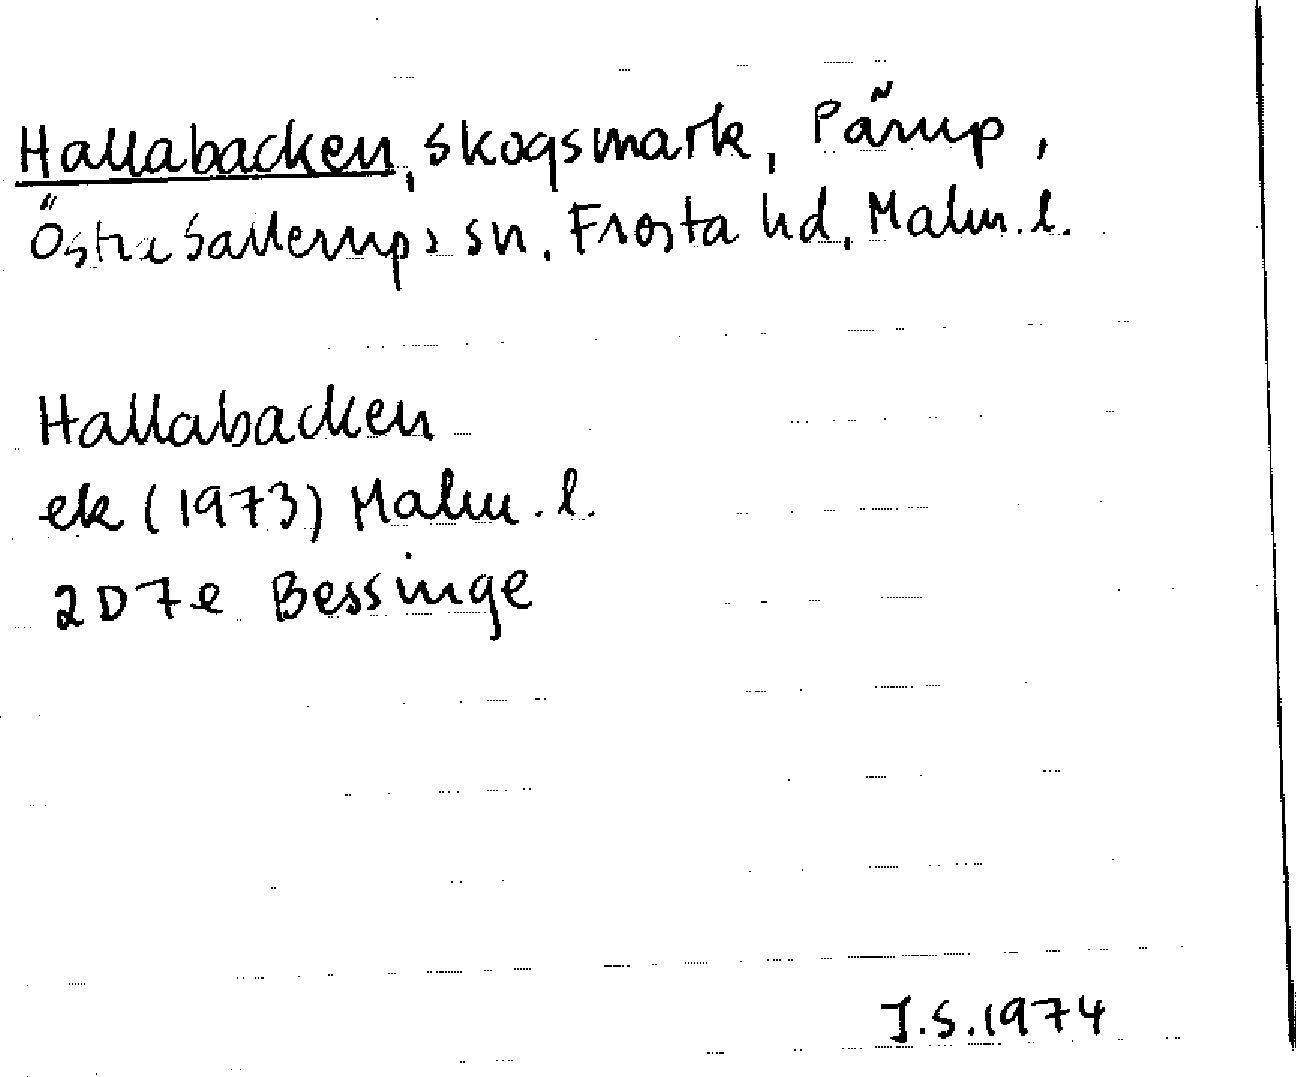 Hallabacken, skogsmark, Pärup,
Östra Sallerups sn, Frosta hd, Malm. l.
Hallabacken
ek (1973) Malm. l.
2D7e Bessinge
J.S. 1974